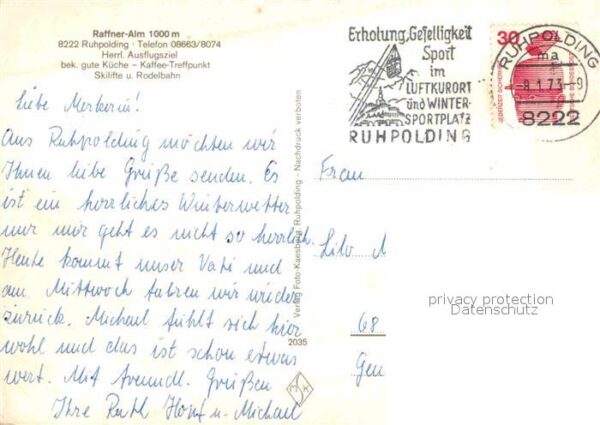 Raffner-Alm 1000 m
8222 Ruhpolding · Telefon 08663/8074
Herrl. Ausflugsziel
bek. gute Küche – Kaffee-Treffpunkt
Skilifte u. Rodelbahn
Erholung, Geselligkeit
Sport
im
LUFTKURORT
und WINTER-
SPORTPLATZ
RUHPOLDING
30
RUHPOLDING
ma
-8.1.73-9
8222
Liebe
Aus Ruhpolding möchten wir
Ihnen liebe Grüße senden. Es
ist ein herrliches Winterwetter
nur mir geht es nicht so herrlich.
Heute kommt unser Vati und
am Mittwoch fahren wir wieder
zurück. Michael fühlt sich hier
wohl und das ist schon etwas
wert. Mit freundl. Grüßen
Ihre Ruth u. Michael
Verlag Foto-Kaesberg, Ruhpolding - Nachdruck verboten
2035
Frau
Lilo M
68
privacy protection
Datenschutz